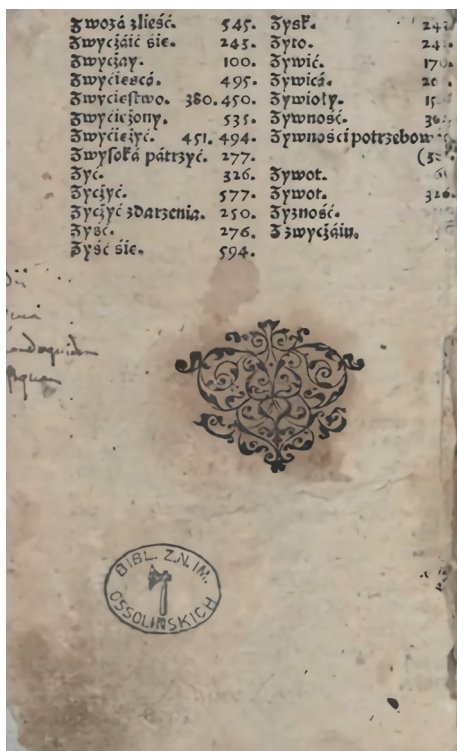 Zwozá zlieść. 545.
Zwyczáić się. 245.
Zwyczáy. 100.
Zwyćiescá. 495.
Zwyćiestwo. 380. 450.
Zwyćiężony. 535.
Zwyćiężyć. 451. 494.
Zwysoká pátrzyć. 277.
Zyć. 326.
Zyczyć. 577.
Zyczyć zdárzenia. 250.
Zyść. 276.
Zyść się. 594.
Zysk.
Zyto.
Zywić.
Zywicá.
Zywioły.
Zywność.
Zywnośći potrzebow
Zywot.
Zywot. 326.
Zyzność.
Z zwyczáiu.
BIBL. Z.N. IM.
OSSOLIŃSKICH